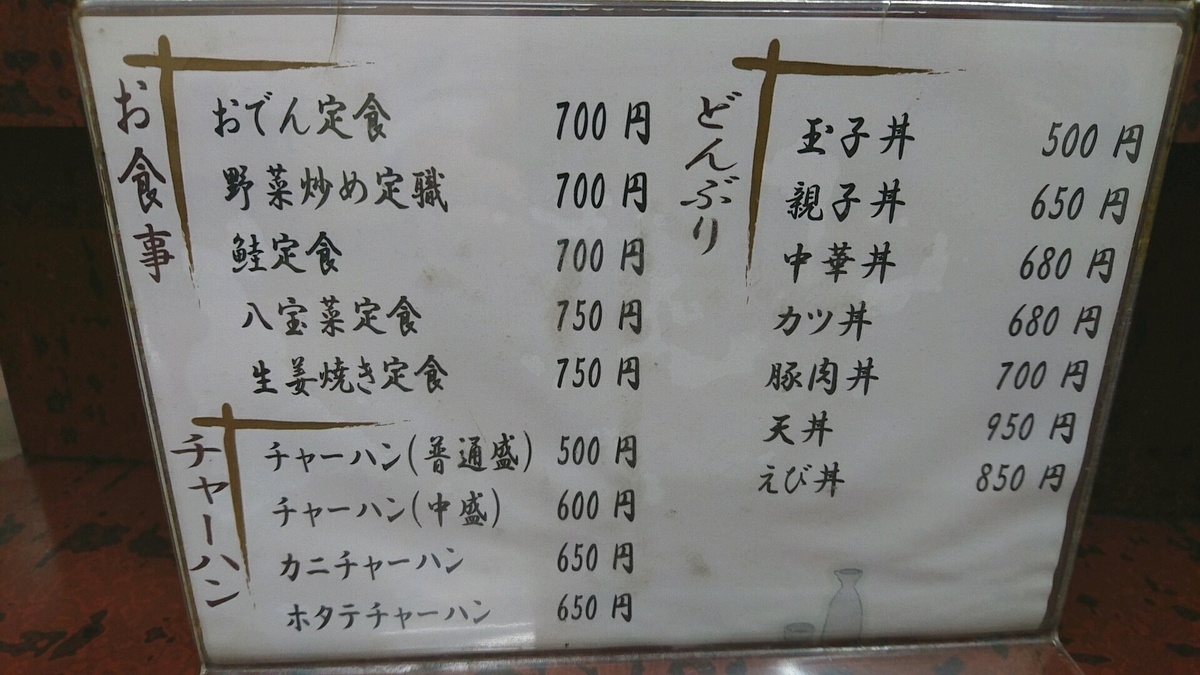 お食事
おでん定食 700 円
野菜炒め定職 700 円
鮭定食 700 円
八宝菜定食 750 円
生姜焼き定食 750 円
チャーハン
チャーハン(普通盛) 500 円
チャーハン(中盛) 600 円
カニチャーハン 650 円
ホタテチャーハン 650 円
どんぶり
玉子丼 500 円
親子丼 650 円
中華丼 680 円
カツ丼 680 円
豚肉丼 700 円
天丼 950 円
えび丼 850 円